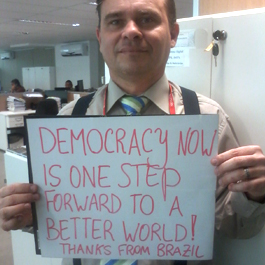 DEMOCRACY NOW
IS ONE STEP
FORWARD TO A
BETTER WORLD!
THANKS FROM BRAZIL